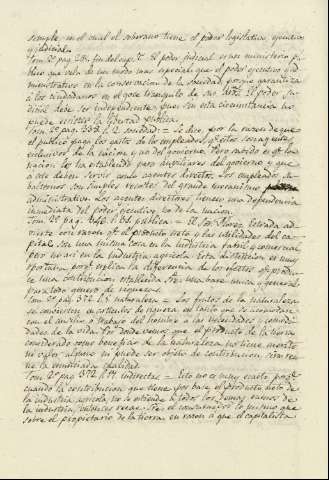 simple, en el cual el soberano tiene el poder legislativo, ejecutivo
y judicial.
Tom. 2º pag. 281. fin del cap. = El poder judicial es un ministerio pu-
blico que vela de un modo mas especial que el poder ejecutivo y ad-
ministrativo en la conservacion de la sociedad porque garantiza
á los ciudadanos en el goce tranquilo de sus El poder ju-
dicial debe ser independiente, pues sin esta circunstancia no
puede existir la libertad publica.
Tom. 2º pag. l. 2. sociedad = Se dice, por la razon de que
el publico paga los gastos de los empleados, qº estos son agentes
exclusivos de la nacion y no del gobierno. Pero sabido es qº la na-
cion los ha establecido para auxiliares del gobierno y que
a este deben servir como agentes directos. Los empleados su-
balternos son simples resortes del grande mecanismo
administrativo. Los agentes directores tienen una dependencia
inmediata del poder ejecutivo y no de la nacion.
Tom. 2º pag. publica = El Sor. Florez Estrada ad-
vierte con razon qº el producto neto y las utilidades del ca-
pital son una misma cosa en la industria fabril y comercial
pero no asi en la industria agricola. Esta distincion es muy
oportuna, porqº explica la diferencia de los efectos qº produ-
ce una contribucion establecida sobre una base unica y general
para todo genero de riquezas.
Tom. 2º pag. 372. l. 5. naturaleza = Los frutos de la naturaleza
se convierten en articulos de riqueza en tanto que se acomodan
con el ausilio y trabajo del hombre á las necesidades y comodi-
dades de la vida. Por donde vemos que el producto de la tierra
considerado como beneficio de la naturaleza no tiene merito
ni valor alguno ni puede ser objeto de contribucion sin ten-
er la enunciada cualidad.
Tom. 2º pag. 372. l. indirectas = Esto no es muy exacto porqº
cuando la contribucion que tiene por base el producto neto de
la industria agricola, no se estiende á todos los demas ramos de
la industria, entonces recae sobre el consumidor lo mismo que
sobre el propietario de la tierra en razon á que el capitalista